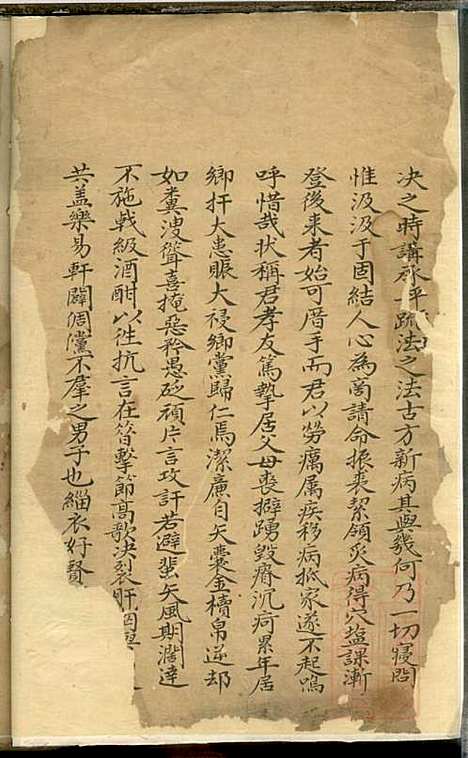 決之時講承平疏法之法古方新病其與幾何乃一切寢閣
惟汲汲于固結人心為啇請命振裘絜領灸病得穴塩課漸
登後来者始可厝手而君以勞癘属疾移病抵家遂不起嗚
呼惜哉状稱君孝友篤摯居父母喪擗踴毀瘠沉疴累年居
鄉扞大患賑大祲鄉黨歸仁焉潔廉自矢囊金櫝帛逆却
如糞溲聳喜掩惡矜愚砭頑片言攻訐若避蜚矢風期濶達
不施戟級酒酣以徃抗言在昝擊節髙歌决裂肝
共盖樂易軒闢倜儻不羣之男子也緇衣好賢